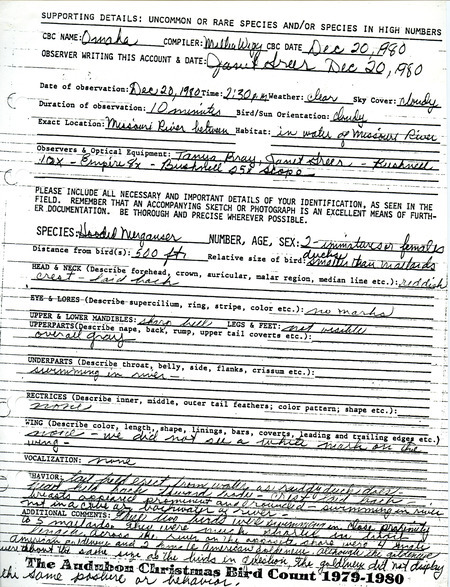 SUPPORTING DETAILS: UNCOMMON OR RARE SPECIES AND/OR SPECIES IN HIGH NUMBERS
CBC NAME: Omaha COMPILER: CBC DATE Dec 20, 1980
OBSERVER WRITING THIS ACCOUNT & DATE: Janet Greer Dec 20, 1980
Date of observation: Dec 20, 1980 Time: 2:30 p.m. Weather: clear Sky Cover: cloudy
Duration of observation: 10 minutes Bird/Sun Orientation: cloudy
Exact Location: Missouri River between Habitat: in water of Missouri River
Observers & Optical Equipment: Tanya Bray, Janet Greer - Bushnell
10X - Empire 8X - Bushnell Scope
PLEASE INCLUDE ALL NECESSARY AND IMPORTANT DETAILS OF YOUR IDENTIFICATION, AS SEEN IN THE
FIELD. REMEMBER THAT AN ACCOMPANYING SKETCH OR PHOTOGRAPH IS AN EXCELLENT MEANS OF FURTH-
ER DOCUMENTATION. BE THOROUGH AND PRECISE WHEREVER POSSIBLE.
SPECIES: Hooded Merganser NUMBER, AGE, SEX: 2 - immatures or females
Distance from bird(s): 500 ft Relative size of bird: smaller than mallards
HEAD & NECK (Describe forehead, crown, auricular, malar region, median line etc.): reddish
crest - laid back
EYE & LORES (Describe supercilium, ring, stripe, color etc.): no marks
UPPER & LOWER MANDIBLES: sharp bill LEGS & FEET: not visible
UPPERPARTS (Describe nape, back, rump, upper tail coverts etc.):
overall gray
UNDERPARTS (Describe throat, belly, side, flanks, crissum etc.):
swimming in river -
RECTRICES (Describe inner, middle, outer tail feathers; color pattern; shape etc.):
none
WING (Describe color, length, shape, linings, bars, coverts, leading and trailing edges etc.)
none - we did not see a white mark on the
wing -
VOCALIZATION: none
BEHAVIOR: tail held erect from water as ruddy duck does -
head held towards - crest laid back -
breasts appeared prominent and rounded - swimming in river
not in a or backwater of river
ADDITIONAL COMMENTS: The two birds were swimming in close proximity
to 5 mallards. They were
Across the river on the opposite shore were 4 male
American goldeneye and 3 female American goldeneye. Although the goldeneye
were about the same size as the birds in question, the goldeneye did not display
The Audubon Christmas Bird Count 1979-1980
the same posture or behavior